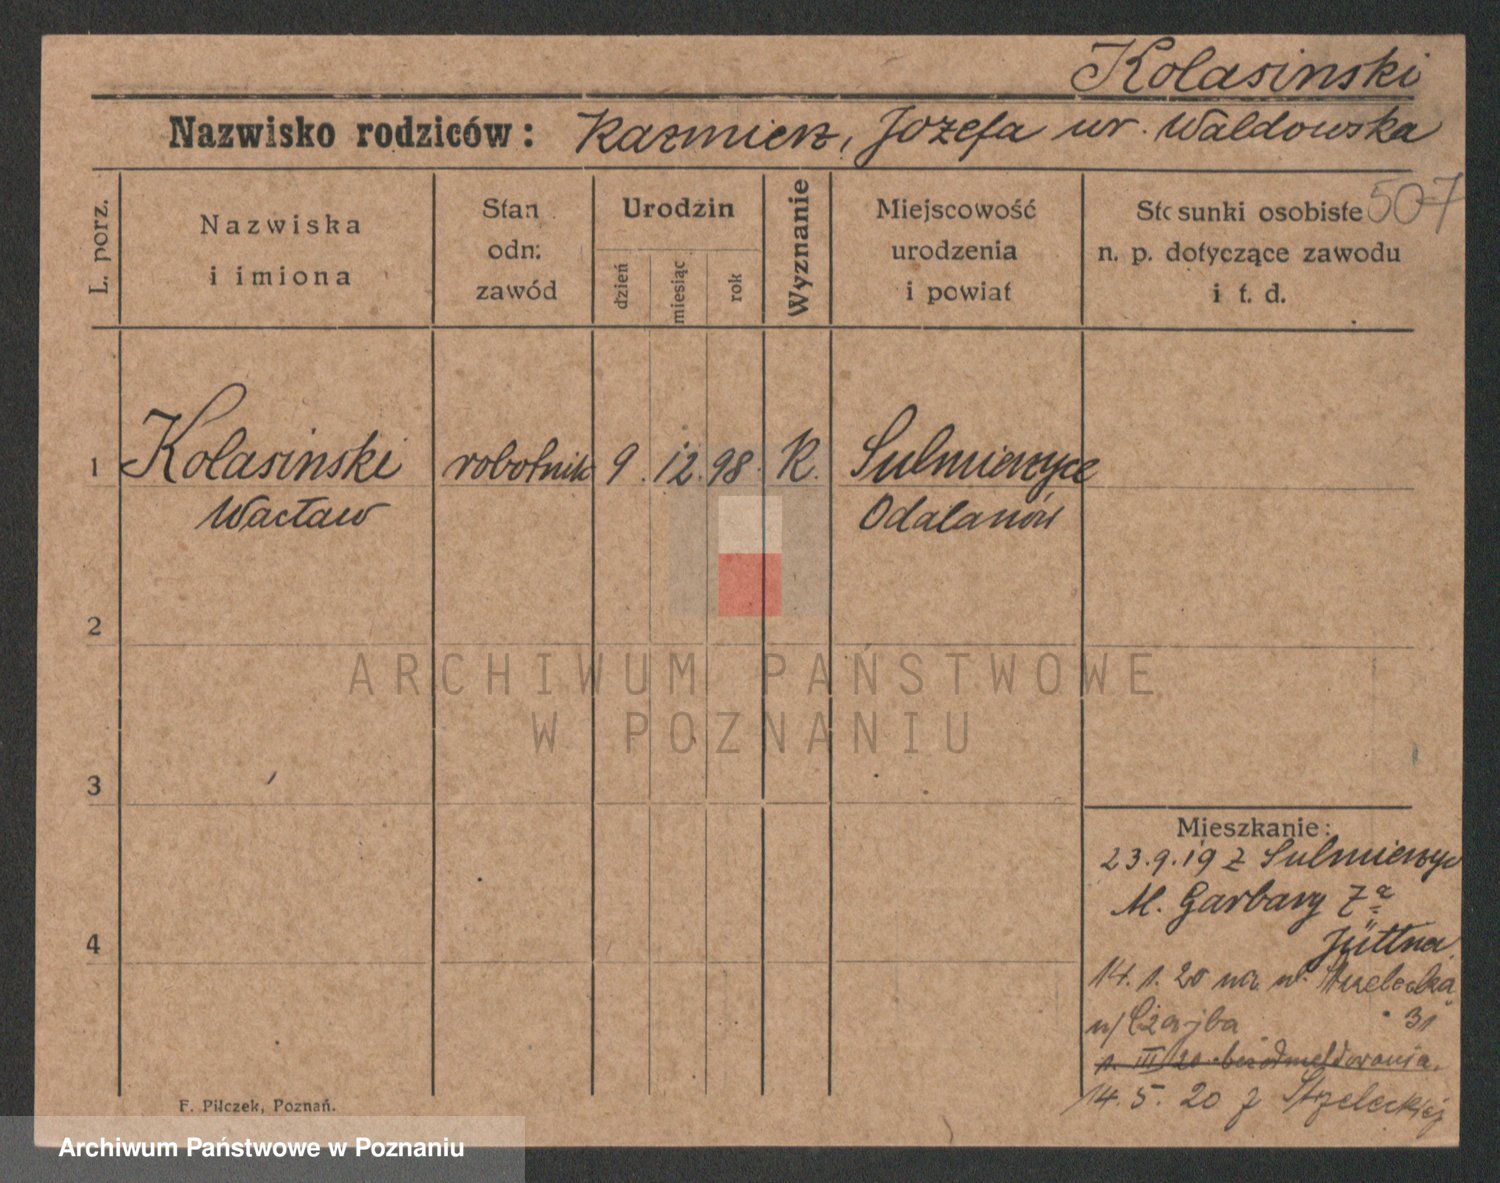 Kolasinski
Nazwisko rodziców: Kazmierz, Jozefa ur. Waldowska
507
L. porz.
Nazwiska
i imiona
Stan
odn:
zawód
Urodzin
dzień
miesiąc
rok
Wyznanie
Miejscowość
urodzenia
i powiat
Stosunki osobiste
n. p. dotyczące zawodu
i t. d.
1 Kolasinski robotnik 9. 12. 98. K. Sulmierzyce
Wacław Odalanów
2
ARCHIWUM PAŃSTWOWE
W POZNANIU
3
Mieszkanie:
23.9.19 z Sulmierzyc
M. Garbary 7a
Jüttna
4
14. 1. 20 na w. Strzelecka
u/ Czajba 31
1. III 20 bez odmeldowania.
14. 5. 20 z Strzeleckiej
F. Pilczek, Poznań.
Archiwum Państwowe w Poznaniu